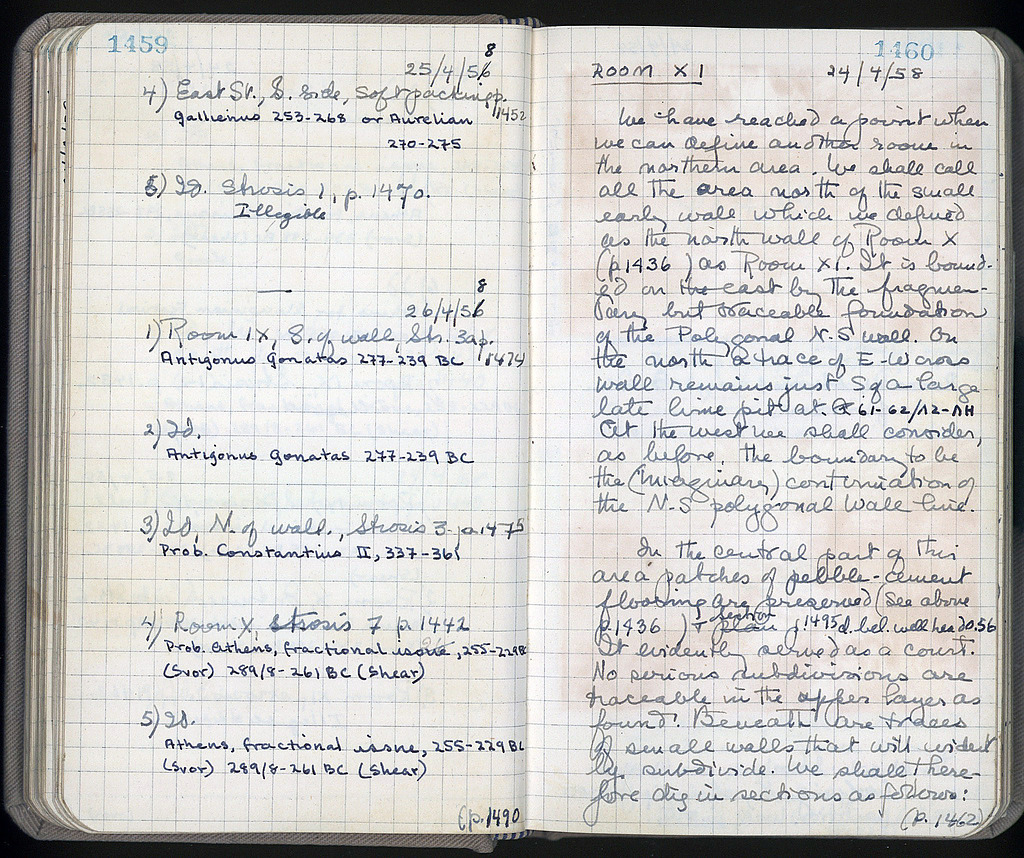 1459
25/4/58
4) East St., S. side, soft packing p. 1452
Gallienus 253-268 or Aurelian
270-275
5) Id. Strosis 1, p. 1470.
Illegible
—
26/4/58
1) Room IX, S. of wall, Str. 3a p. 1474
Antigonus Gonatas 277-239 BC
2) Id.
Antigonus Gonatas 277-239 BC
3) Id, N. of wall, Strosis 3 p. 1475
Prob. Constantius II, 337-361
4) Room X, strosis 7 p. 1442
Prob. Athens, fractional issue, 255-229 BC
(Svor) 289/8-261 BC (Shear)
5) Id.
Athens, fractional issue, 255-229 BC
(Svor) 289/8-261 BC (Shear)
(p. 1490
1460
ROOM XI 24/4/58
We have reached a point when
we can define another room in
the northern area. We shall call
all the area north of the small
early wall which we defined
as the north wall of Room X
(p 1436 ) as Room XI. It is bound-
ed on the east by the fragmen-
tary but traceable foundation
of the Polygonal N-S wall. On
the north a trace of E-W cross
wall remains just S of a large
late lime pit at 61-62/ΛZ-ΛΗ
At the west we shall consider,
as before, the boundary to be
the (imaginary) continuation of
the N-S polygonal wall line.
In the central part of this
area patches of pebble-cement
flooring are preserved (see above
p. 1436 ) + section p. 1495 d. bel. well head 0.56
It evidently served as a court.
No serious subdivisions are
traceable in the upper layer as
found. Beneath are traces
of small walls that will evident-
ly subdivide. We shall there-
fore dig in sections as follows:
(p. 1462)